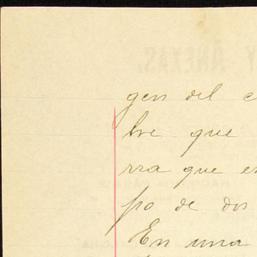 Y ANEXAS.
gen del c
bre que
rra que es
po de dos
En una